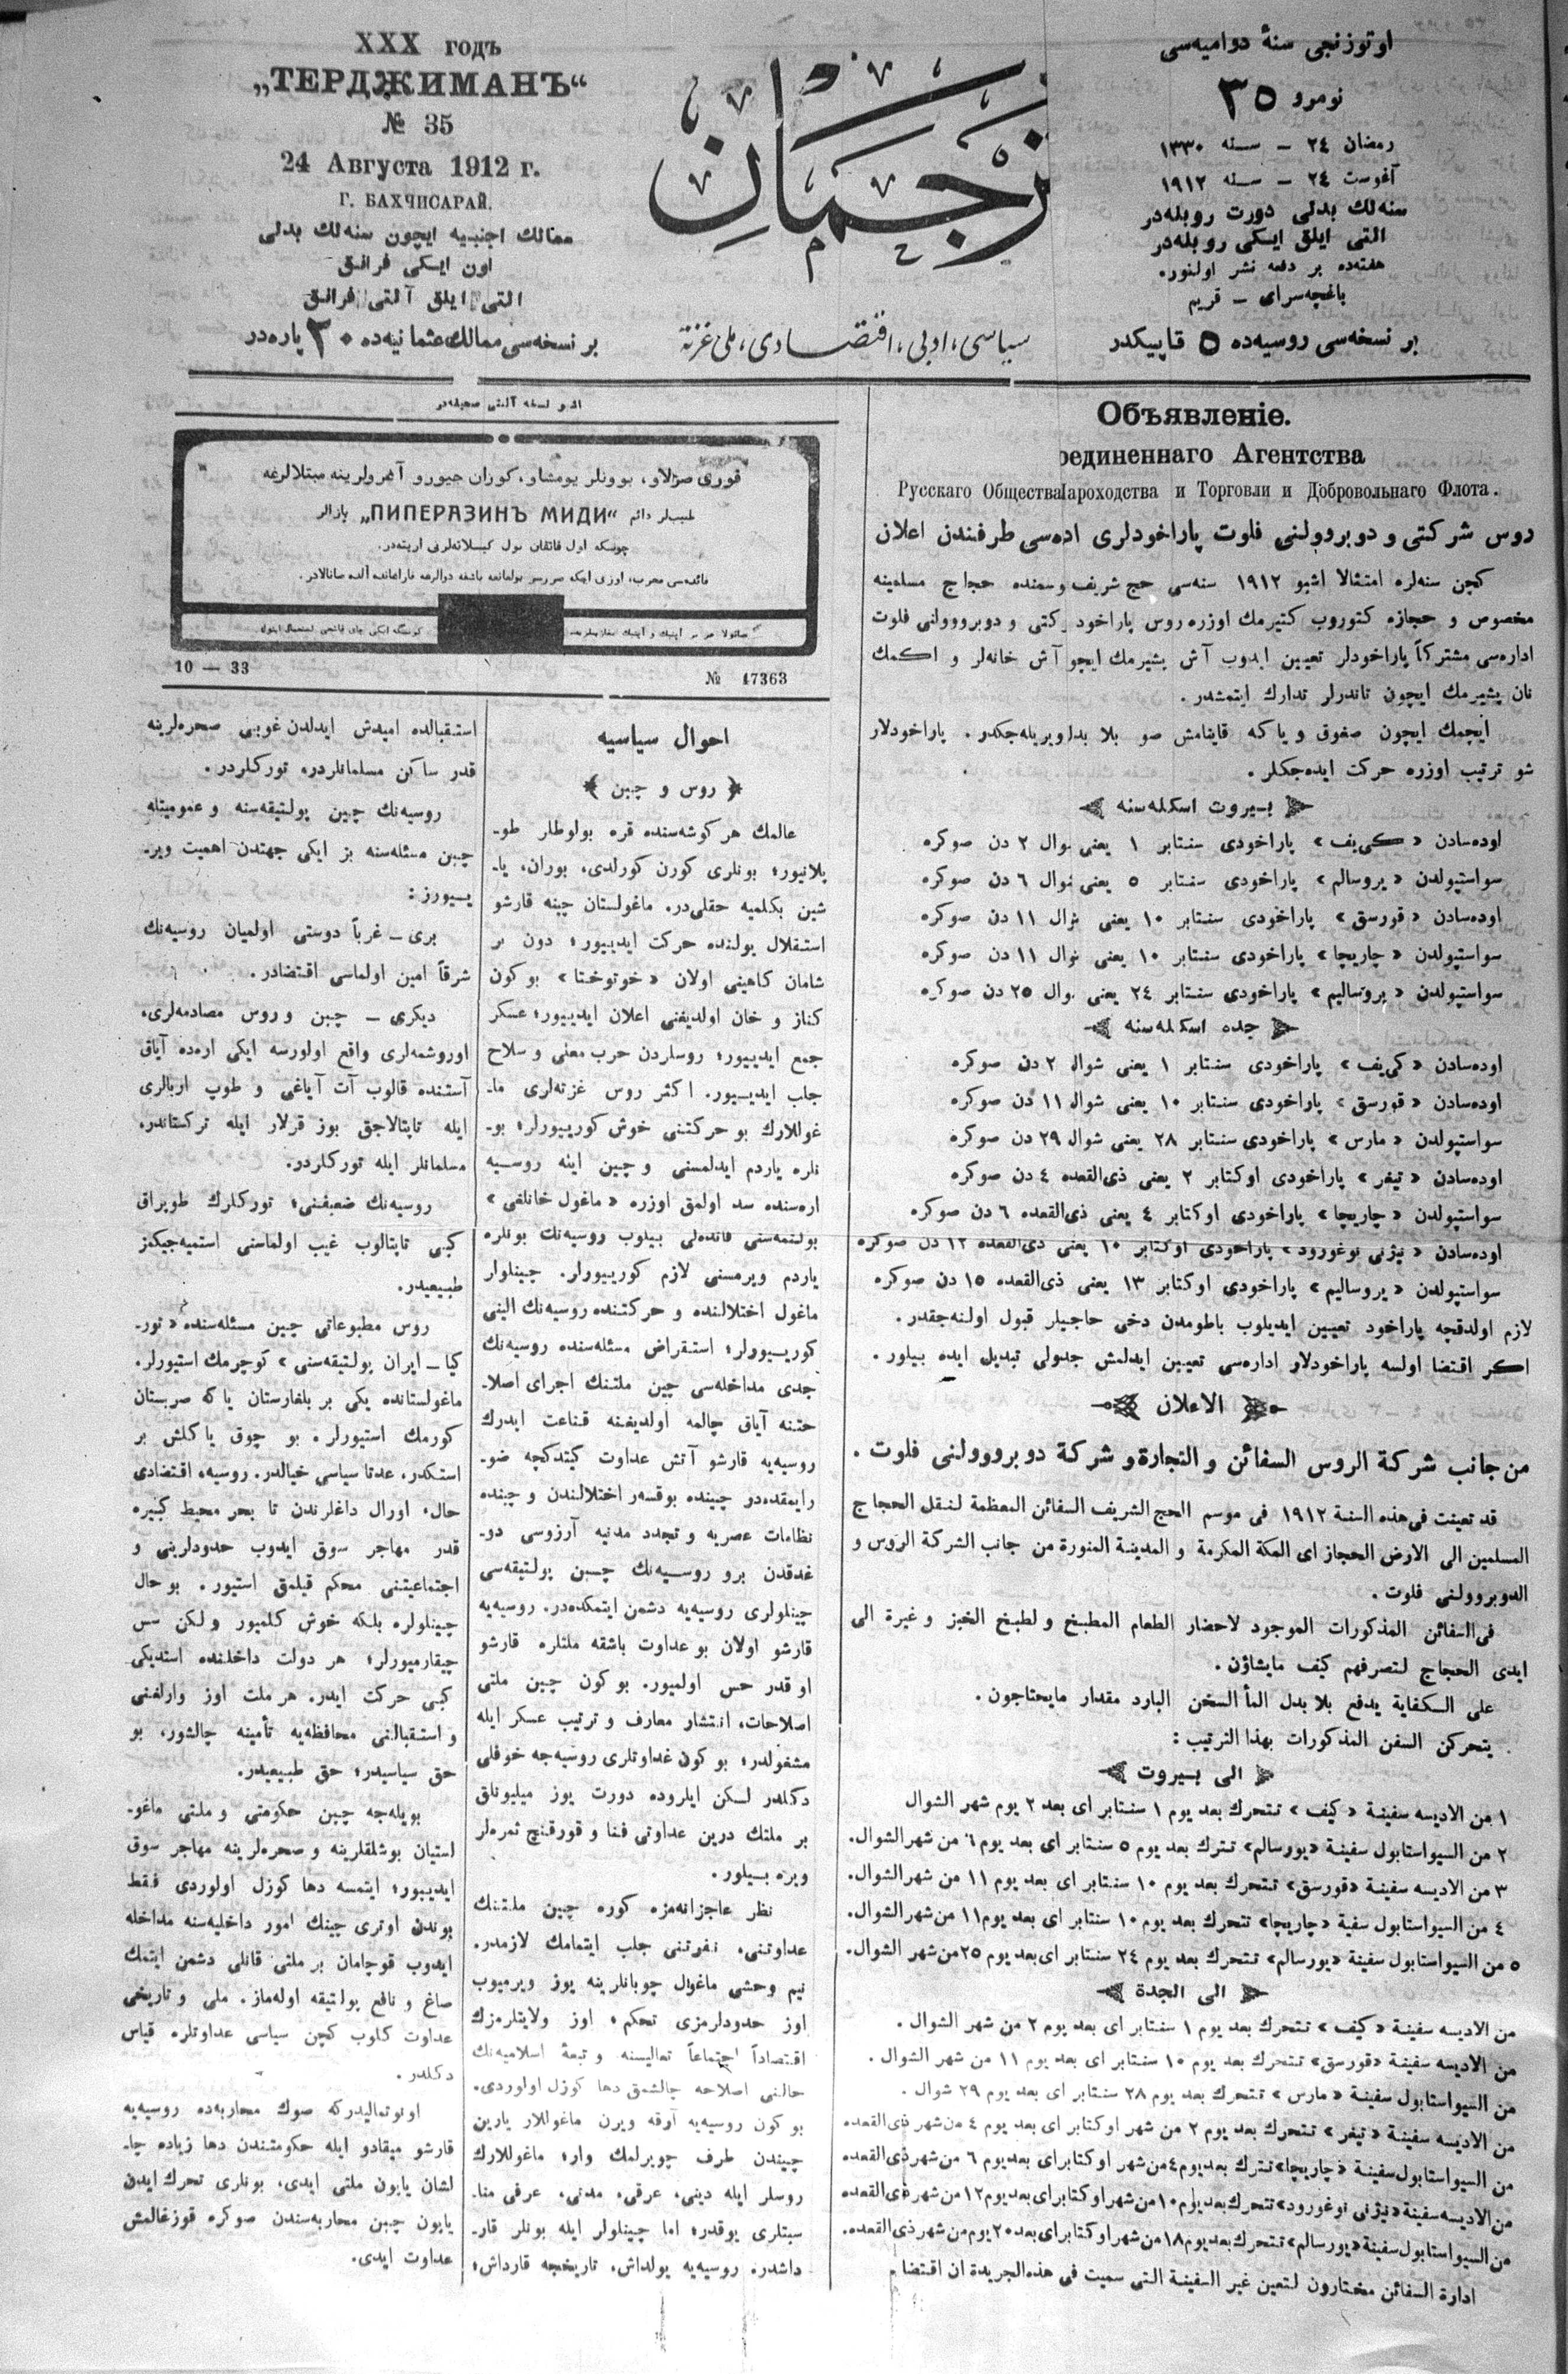 XXX годъ
„ТЕРДЖИМАНЪ“
№ 35
24 Августа 1912 г.
Г. БАХЧИСАРАЙ.
ممالك اجنبيه ايچون سنه‌لك بدلى
اون ايكى فرانق
التى ايلق آلتى فرانق
بر نسخه‌سى ممالك عثمانيه‌ده ٢٠ پاره‌در
ترجمان
سياسى، ادبى، اقتصادى، ملى غزته
اوتوزنجى سنۀ دواميه‌سى
نومرو ٣٥
رمضان ٢٤ – سنه ١٣٣٠
آغوست ٢٤ – سنه ١٩١٢
سنه‌لك بدلى دورت روبله‌در
التى ايلق ايكى روبله‌در
هفته‌ده بر دفعه نشر اولنور.
باغچه‌سراى – قريم
بر نسخه‌سى روسيه‌ده ٥ قاپيكدر
Объявленіе.
единеннаго Агентства
Русскаго Общества ароходства и Торговли и Добровольнаго Флота.
روس شركتى و دوبروولنى فلوت پاراخودلرى اده‌سى طرفندن اعلان
كچن سنه‌لره امتثالا اشبو ١٩١٢ سنه‌سى حج شريف وسمنده حجاج مسلمينه
مخصوص و حجازه كتوروب كتيرمك اوزره روس پاراخود كتى و دوبرووولنى فلوت
اداره‌سى مشتركاً پاراخودلر تعيين ايدوب آش پشيرمك ايچو آش خانه‌لر و اكمك
نان پشيرمك ايچون تاندرلر تدارك ايتمشدر.
ايچمك ايچون صغوق و ياكه قاينامش صو بلا بدل ويريله‌جكدر. پاراخودلار
شو ترتيب اوزره حركت ايده‌جكلر.
بيروت اسكله‌سنه
اوده‌سادن «كيف» پاراخودى سنتابر ١ يعنى وال ٢ دن صوكره
سواستپولدن «يروسالم» پاراخودى سنتابر ٥ يعنى وال ٦ دن صوكره
اوده‌سادن «قورسق» پاراخودى سنتابر ١٠ يعنى وال ١١ دن صوكره
سواستپولدن «چاريچا» پاراخودى سنتابر ١٠ يعنى وال ١١ دن صوكره
سواستپولدن «يروساليم» پاراخودى سنتابر ٢٤ يعنى وال ٢٥ دن صوكره
جده اسكله‌سنه
اوده‌سادن «كيف» پاراخودى سنتابر ١ يعنى شوال ٢ دن صوكره
اوده‌سادن «قورسق» پاراخودى سنتابر ١٠ يعنى شوال ١١ دن صوكره
سواستپولدن «مارس» پاراخودى سنتابر ٢٨ يعنى شوال ٢٩ دن صوكره
اوده‌سادن «تيغر» پاراخودى اوكتابر ٢ يعنى ذى‌القعده ٤ دن صوكره
سواستپولدن «چاريچا» پاراخودى اوكتابر ٤ يعنى ذى‌القعده ٦ دن صوكره
اوده‌سادن «نيژنى نوغورود» پاراخودى اوكتابر ١٠ يعنى ذى‌القعده ١٢ دن صوكره
سواستپولدن «يروساليم» پاراخودى اوكتابر ١٣ يعنى ذى‌القعده ١٥ دن صوكره
لازم اولدقچه پاراخود تعيين ايديلوب باطومدن دخى حاجيلر قبول اولنه‌جقدر.
اكر اقتضا اولسه پاراخودلار اداره‌سى تعيين ايدلمش جدولى تبديل ايده بيلور.
الاعلان
من جانب شركة الروس السفائن و التجارة و شركة دوبرووولنى فلوت.
قد تعينت فى هذه السنة ١٩١٢ فى موسم الحج الشريف السفائن المعظمة لنقل الحجاج
المسلمين الى الارض الحجاز اى المكة المكرمة و المدينة المنورة من جانب الشركة الروس و
الدوبروولنى فلوت.
فى السفائن المذكورات الموجود لاحضار الطعام المطبخ و لطبخ الخبز و غيرة الى
ايدى الحجاج لتصرفهم كيف مايشاؤن.
على الكفاية يدفع بلا بدل المأ السخن البارد مقدار مايحتاجون.
يتحركن السفن المذكورات بهذا الترتيب:
الى بيروت
١ من الاديسه سفينة «كيف» تتحرك بعد يوم ١ سنتابر اى بعد ٢ يوم شهر الشوال
٢ من السيواستابول سفينة «يورسالم» تترك بعد يوم ٥ سنتابر اى بعد يوم ٦ من شهر الشوال.
٣ من الاديسه سفينة «قورسق» تتحرك بعد يوم ١٠ سنتابر اى بعد يوم ١١ من شهر الشوال.
٤ من السيواستابول سفية «چاريچا» تتحرك بعد يوم ١٠ سنتابر اى بعد يوم ١١ من شهر الشوال.
٥ من السيواستابول سفينة «يورسالم» تتحرك بعد يوم ٢٤ سنتابر اى بعد يوم ٢٥ من شهر الشوال.
الى الجدة
من الاديسه سفينة «كيف» تتحرك بعد يوم ١ سنتابر اى بعد يوم ٢ من شهر الشوال.
من الاديسه سفينة «قورسق» تتحرك بعد يوم ١٠ سنتابر اى بعد يوم ١١ من شهر الشوال.
من السيواستابول سفينة «مارس» تتحرك بعد يوم ٢٨ سنتابر اى بعد يوم ٢٩ شوال.
من الاديسه سفينة «تيغر» تتحرك بعد يوم ٢ من شهر اوكتابر اى بعد يوم ٤ من شهر ذى القعده
من السيواستابول سفينة «چاريچا» تترك بعد يوم ٤ من شهر اوكتابر اى بعد يوم ٦ من شهر ذى القعده
من الاديسه سفينة «نيژنى نوغورود» تتحرك بعد يوم ١٠ من شهر اوكتابر اى بعد يوم ١٢ من شهر ذى القعده
من السيواستابول سفينة «يورسالم» تتحرك بعد يوم ١٨ من شهر اوكتابر اى بعد ٢٠ يوم من شهر ذى القعده.
ادارة السفائن مختارون لتعين غير السفينة التى سميت فى هذه الجريدة ان اقتضا.
اشبو نسخه آلتى صحيفه‌در
قورى صزلاو، بوونلر يومشاو، كوران جيورو آغرولرينه مبتلالرغه
طبيبلر دائم „ПИПЕРАЗИНЪ МИДИ“ يازالر
چونكه اول قاتقان بول كيسلاتەلرنى اريته‌در.
10 — 33
№ 17363
احوال سياسيه
روس و چين
عالمك هر كوشه‌سنده قره بولوطلر طو-
پلانيور؛ بونلرى كورن كورلدى، بوران، يا-
شين بكلميه حقلى‌در. ماغولستان چينه قارشو
استقلال يولنده حركت ايدييور؛ دون بر
شامان كاهينى اولان «خوتوختا» بو كون
كناز و خان اولديغنى اعلان ايدييور؛ عسكر
جمع ايدييور؛ روسلردن حرب معنى و سلاح
جلب ايدييور. اكثر روس غزته‌لرى ما-
غوللارك بو حركتنى خوش كورييورلر؛ بو-
نلره ياردم ايدلمسنى و چين اينه روسيه
اره‌سنده سد اولمق اوزره «ماغول خانلغى»
بولنمه‌سنى فائده‌لى بيلوب روسيه‌نك بونلره
ياردم ويرمسنى لازم كورييورلر. چينلولر
ماغول اختلالنده و حركتنده روسيه‌نك الينى
كورييورلر؛ استقراض مسئله‌سنده روسيه‌نك
جدى مداخله‌سى چين ملتنك اجراى اصلا-
حتنه آياق چالمه اولديغنه قناعت ايدرك
روسيه‌يه قارشو آتش عداوت كيتدكچه ضو-
رايمقده‌در چينده بوقسەر اختلالندن و چينده
نظامات عصريه و تجدد مدنيه آرزوسى دو-
غدقدن برو روسيه‌نك چين پولتيقه‌سى
چينلولرى روسيه‌يه دشمن ايتمكده‌در. روسيه‌يه
قارشو اولان بو عداوت باشقه ملتلره قارشو
او قدر حس اولميور. بو كون چين ملتى
اصلاحات، انتشار معارف و ترتيب عسكر ايله
مشغولدر؛ بو كون عداوتلرى روسيه‌جه خوفلى
دكلدر لكن ايلروده دورت يوز ميليونلق
بر ملتك درين عداوتى فنا و قورقنچ ثمره‌لر
ويره بيلور.
نظر عاجزانه‌مزه كوره چين ملتنك
عداوتنى، نفرتنى جلب ايتمامك لازمدر.
نيم وحشى ماغوال چوبانلرينه يوز ويرميوب
اوز حدودلرمزى تحكم، اوز ولايتلرمزك
اقتصاداً اجتماعاً تعاليسنه و تبعۀ اسلاميه‌نك
حالنى اصلاحه چالشمق دها كوزل اولاوردى.
بو كون روسيه‌يه آرقه ويرن ماغوللار يارين
چيندن طرف چويرلمك وار؛ ماغوللارك
روسلر ايله دينى، عرقى، مدنى، عرفى منا-
سبتلرى يوقدر؛ اما چينلولر ايله بونلر قار-
داشدر. روسيه‌يه يولداش، تاريخچه قارداش؛
استقبالده اميدش ايدلدن غوبى صحره‌لرينه
قدر ساكن مسلمانلردر، توركلردر.
روسيه‌نك چين پولتيقه‌سنه و عموميتله
چين مسئله‌سنه بز ايكى جهتدن اهميت وير-
ييورز:
برى – غرباً دوستى اولميان روسيه‌نك
شرقاً امين اولماسى اقتضادر.
ديكرى – چين و روس مصادمه‌لرى،
اوروشمه‌لرى واقع اولورسه ايكى اره‌ده آياق
آستنده قالوب آت آياغى و طوپ اربالرى
ايله تاپتالاجق بوز قرلار ايله تركستاندر،
مسلمانلر ايله توركلردر.
روسيه‌نك ضعيفنى؛ توركلرك طوبراق
كبى تاپتالوب غيب اولماسنى استميه‌جيكمز
طبيعيدر.
روس مطبوعاتى چين مسئله‌سنده «تور-
كيا – ايران پولتيقه‌سنى» كوچرمك استيورلر.
ماغولستانده يكى بر بلغارستان ياكه صربستان
كورمك استيورلر. بو چوق ياكلش بر
استكدر، عدتا سياسى خيالدر. روسيه، اقتضادى
حال، اورال داغلرندن تا بحر محيط كبيره
قدر مهاجر سوق ايدوب حدودلرينى و
اجتماعيتنى محكم قيلمق استيور. بو حال
چينلولره بلكه خوش كلميور ولكن سس
چيقارميورلر؛ هر دولت داخلنده استديكى
كبى حركت ايدر. هر ملت اوز وارلغنى
و استقبالنى محافظه‌يه تأمينه چالشور، بو
حق سياسيدر؛ حق طبيعيدر.
بويله‌جه چين حكومتى و ملتى ماغو-
استيان بوشلقلرينه و صحره‌لرينه مهاجر سوق
ايدييور؛ ايتمسه دها كوزل اولوردى فقط
بوندن اوترى چينك امور داخليه‌سنه مداخله
ايدوب قوچامان بر ملتى قانلى دشمن ايتمك
صاغ و نافع پولتيقه اوله‌ماز. ملى و تاريخى
عداوت كلوب كچن سياسى عداوتلره قياس
دكلدر.
اونوتماليدركه صوك محاربه‌ده روسيه‌يه
قارشو ميقادو ايله حكومتندن دها زياده چا-
لشان ياپون ملتى ايدى، بونلرى تحرك ايدن
ياپون چين محاربه‌سندن صوكره قوزغالمش
عداوت ايدى.